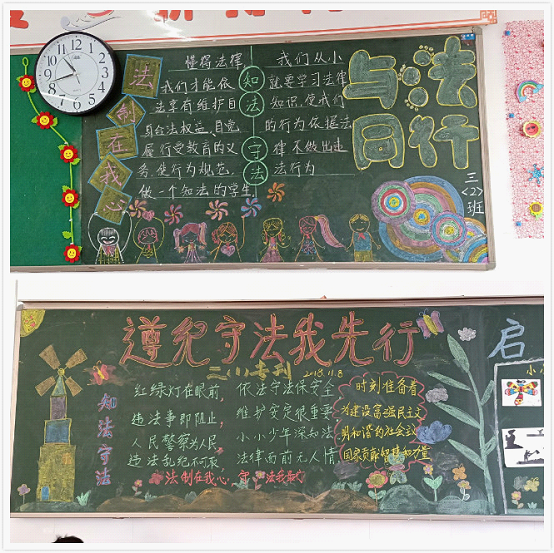 法制在我心
懂得法律
我们才能依
法享有维护自
身合法权益,自觉
履行受教育的义
务,使行为规范,
做一个知法的学生
知法守法
我们从小
就要学习法律
知识,使我们
的行为依据法
律 不做出违
法行为
与法
同行
三
<2>
班
遵纪守法我先行
三(1)专刊 2018.11.8
知法守法
红绿灯在眼前,
违法事即阻止,
人民警察为人民,
违法乱纪不可取
法制在我心,
依法守法保安全
维护安定很重要
小小少年深知法
法律面前无人情
时刻准备着
为建设富强民主文
明和谐的社会主义
国家贡献智慧和力量
启
小小